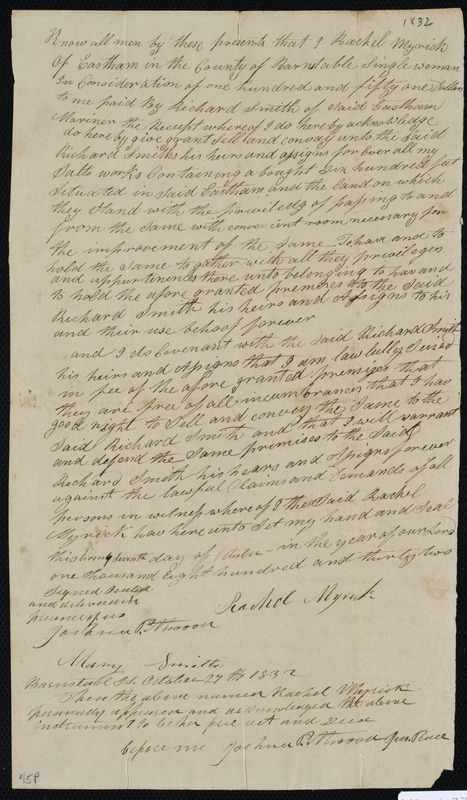 1832
Know all men by these presents that I Rachel Myrick
Of Eastham in the County of Barnstable Single woman
In Consideration of one hundred and fifty one Dollars
to me paid by Richard Smith of Said Eastham
Mariner the Receipt whereof I do here by acknowledge
do here by give grant Sell and convay unto the Said
Richard Smith his heirs and assigns for Over all my
Salts works Containing a bought Six hundred feet
Situated in Said Eastham and the land on which
they Stand with the priviledg of passing to and
from the Same with convenient room necessary for
the improvement of the Same To have and to
hold the Same to gather with all they privileges
and appurtenances there unto belonging to hav and
to hold the afore granted premises to the Said
Richard Smith his heirs and Assigns to his
and their use behoof forever
and I do Covenant with the Said Richard Smith
his heirs and Assigns that I am lawfully Seised
in fee of the afore granted premises that
they are free of all incumbrances that I hav
good right to Sell and convey the Same to the
Said Richard Smith and that I will warrant
and defend the Same premises to the Said
Richard Smith his hears and Assigns forever
against the lawful Claims and Demands of all
persons in witness whereof I the Said Rachel
Myrick hav here unto Set my hand and Seal
this twenty Seventh day of October in the year of our Lord
one thousand Eight hundred and thirty two
Signed Sealed
and delivered in
presence of us
Rachel Myrick
Joshua P. Atwood
Mary Smith
Barnstable SS. October 27th 1832
Then the above named Rachel Myrick
personally appeared and acknowledged the above
instrument to be her free act and Deed
before me Joshua P. Atwood Jus. Peace
45P